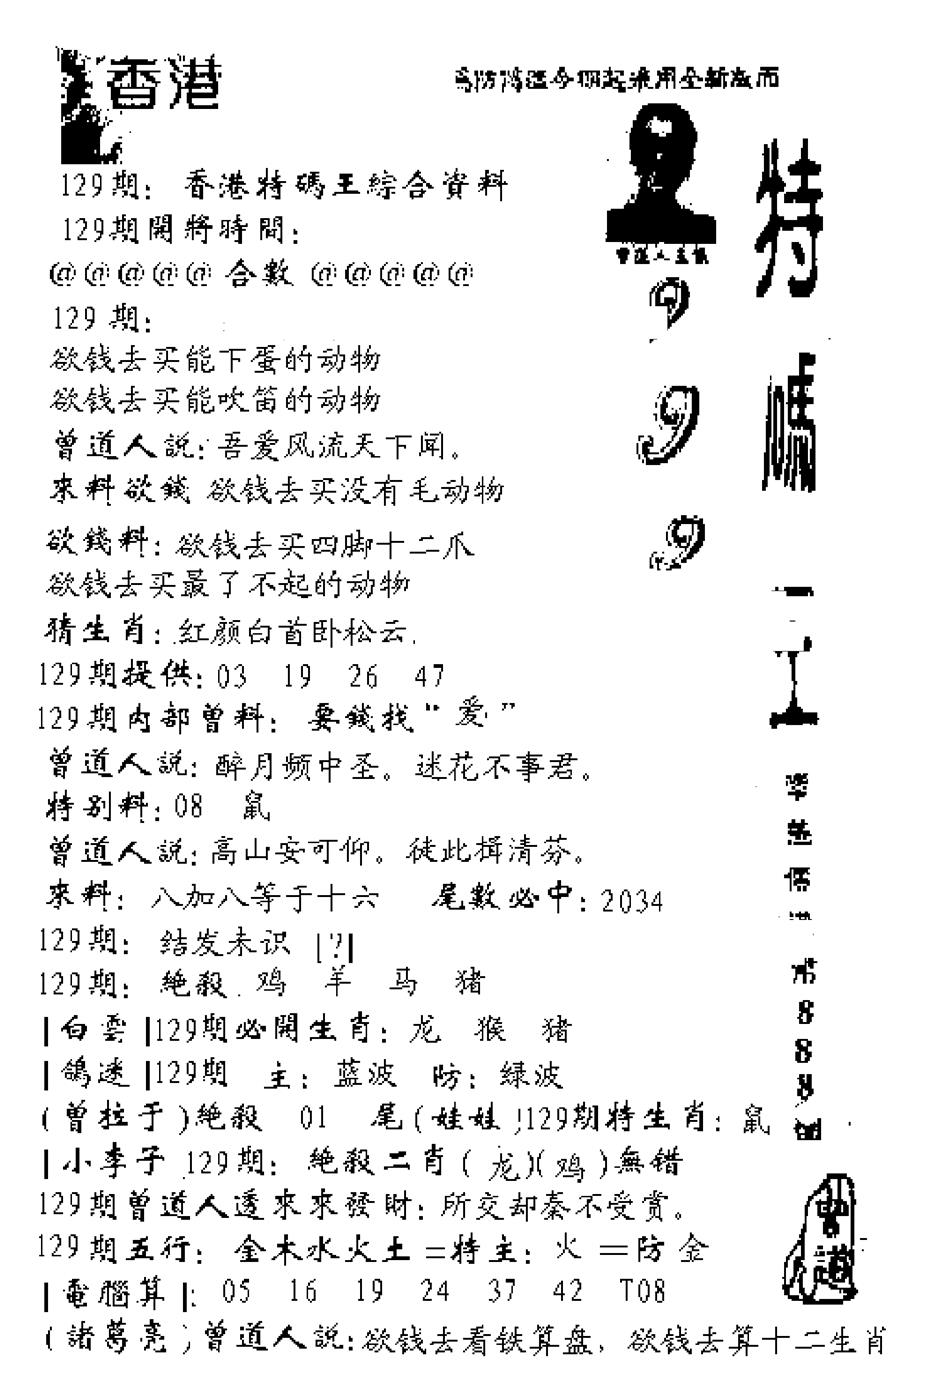 香港
129期：香港特碼王綜合資料
129期開將時間：
@@@@@合數@@@@@
129期：
欲钱去买能下蛋的动物
欲钱去买能吹笛的动物
曾道人説：吾爱风流天下闻。
來料欲錢 欲钱去买没有毛动物
欲錢料：欲钱去买四脚十二爪
欲钱去买最了不起的动物
猜生肖：红颜白首卧松云.
129期提供：03 19 26 47
129期内部曾料：要錢找“爱”
曾道人説：醉月频中圣。迷花不事君。
特别料：08 鼠
曾道人説：高山安可仰。徒此揖清芬。
來料：八加八等于十六 尾數必中：2034
129期：结发未识 |?|
129期：絶殺. 鸡 羊 马 猪
|白雲|129期必開生肖：龙 猴 猪
|鴿迷|129期 主：蓝波 防：绿波
(曾拉于)絶殺 01 尾(娃娃)129期特生肖：鼠
|小李子 129期：絶殺二肖(龙)(鸡)無错
129期曾道人透來來發財：所交却秦不受赏。
129期五行：金木水火土=特主：火 =防金
|電腦算|：05 16 19 24 37 42 T08
(諸葛亮)曾道人説：欲钱去看铁算盘，欲钱去算十二生肖
9
9
9
特
碼
王
8
8
8
曾道